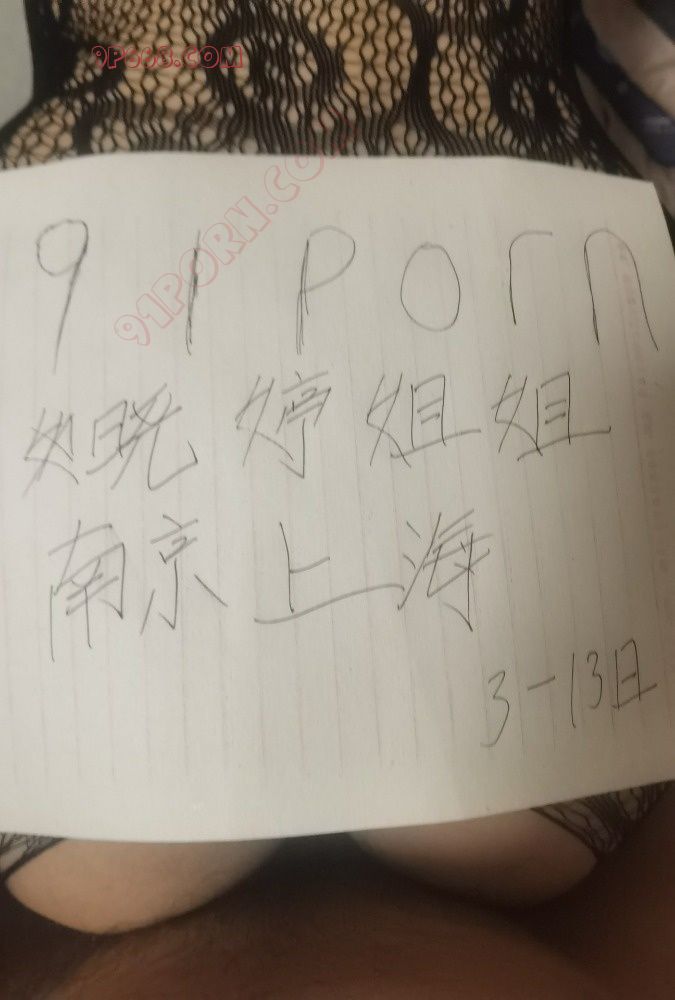 9P66B.COM
91PORN.COM
91porn
晓婷姐姐
南京上海
3-13日